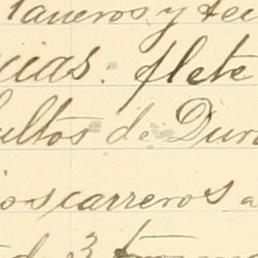 taneros y te
uias: flete
ultos de Dur
ios carreros a
de 3